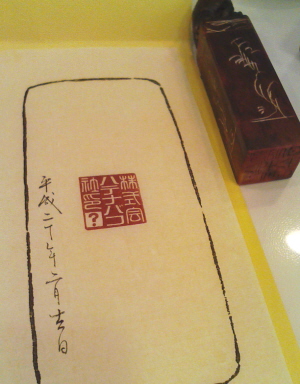 株式会
ハチハコ
社印?
平成二十年二月吉日